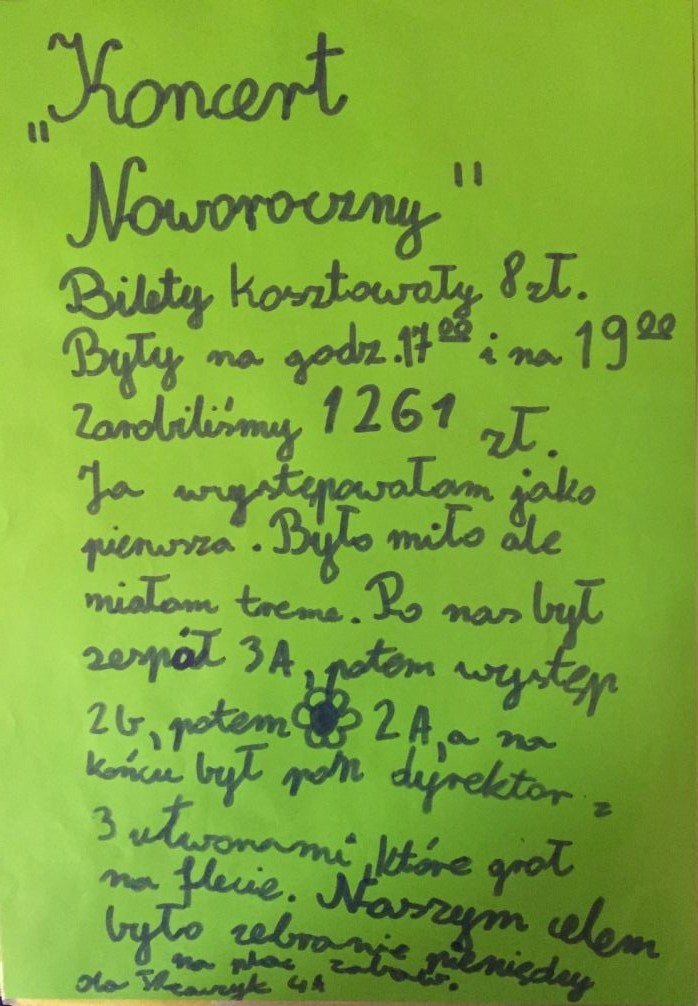 „Koncert
Noworoczny"
Bilety kosztowały 8 zł.
Były na godz. 17⁰⁰ i na 19⁰⁰
Zarobiliśmy 1261 zł.
Ja występowałam jako
pierwsza. Było miło ale
miałam treme. Po nas był
zespół 3A, potem występ
2b, potem 2A, a na
końcu był pan dyrektor z
3 utworami, które grał
na flecie. Naszym celem
było zebranie pieniędzy
na plac zabaw.
Ola 4A